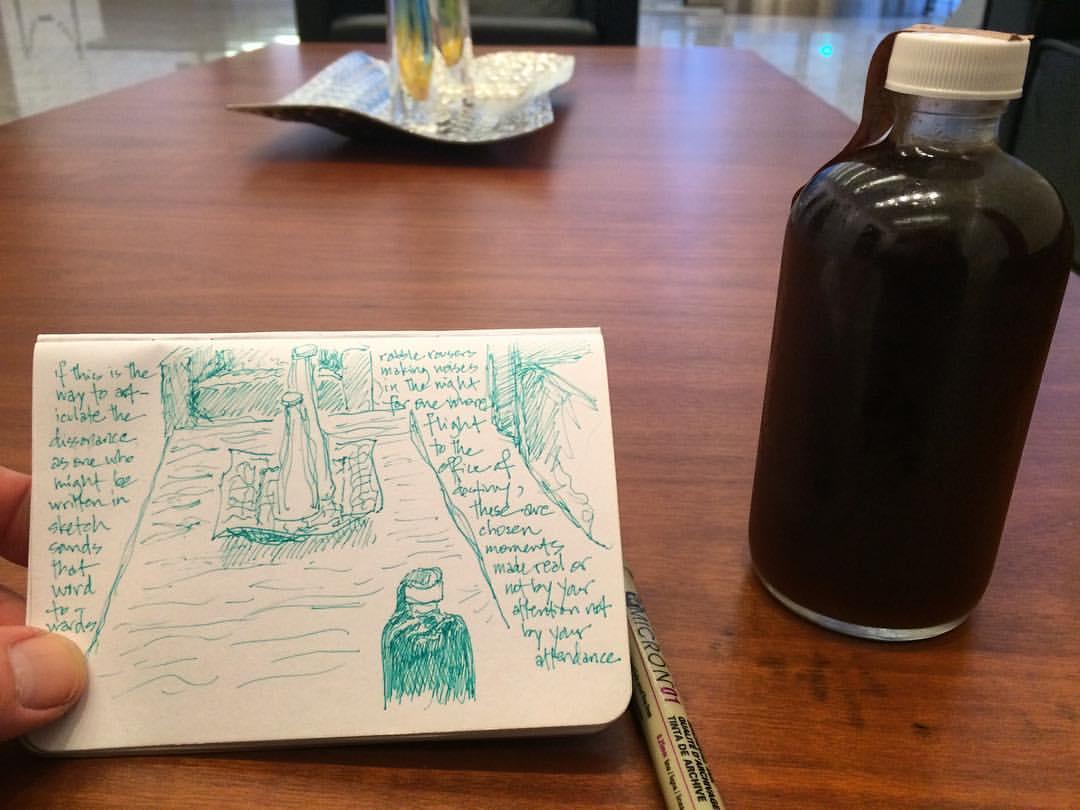 if this is the
way to art-
iculate the
dissonance
as one who
might be
written in
sketch
sands
that
word
to
wards
rabble rousers
making noises
in the night
for one whose
flight
to the
office of
destiny,
these are
chosen
moments
made real or
not by your
attention not
by your
attendance
MICRON 01
QUALITÉ D'ARCHIVAGE
TINTA DE ARCHIVE